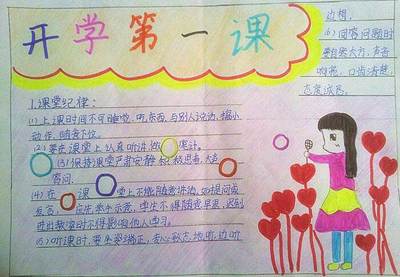 开学第一课
1.课堂纪律:
(1)上课时间不可睡觉,听东西,与别人说话,搞小
动作,随意下位。
(2)要在课堂上认真听讲,做笔记。
(3)保持课堂严肃安静,积极思考,大声
答问.
(4)在课堂上不能随意讲话,如提问或
发言,应先举手示意,学生不得随意早退,迟到
进出教室时不得影响他人学习。
(5)听课时,要坐姿端正,专心致志地听,边听
边想,
(6)回答问题时
要自然大方,声音
响亮,口齿清楚,
态度诚恳。